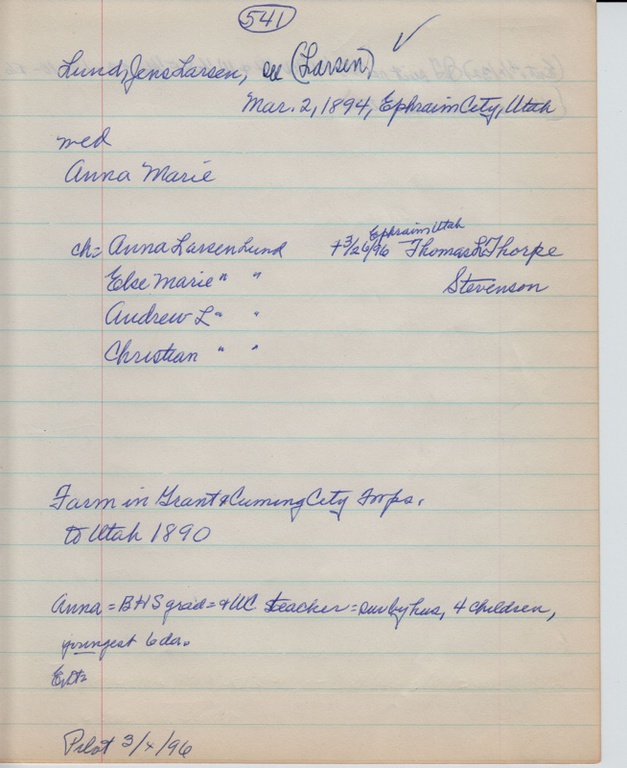 541
Lund, Jens Larsen, see (Larsen) ✓
Mar. 2, 1894, Ephraim City, Utah
med
Anna Marie
Ephraim Utah
ch= Anna Larsen Lund + 3/26/96 Thomas L. Thorpe
Else Marie " " Stevenson
Andrew L " "
Christian " "
Farm in Grant & Cuming City Twps.
to Utah 1890
Anna = BHS grad = & UC teacher = sur by hus, 4 children,
youngest 6 da.
Pilot 3/4/96